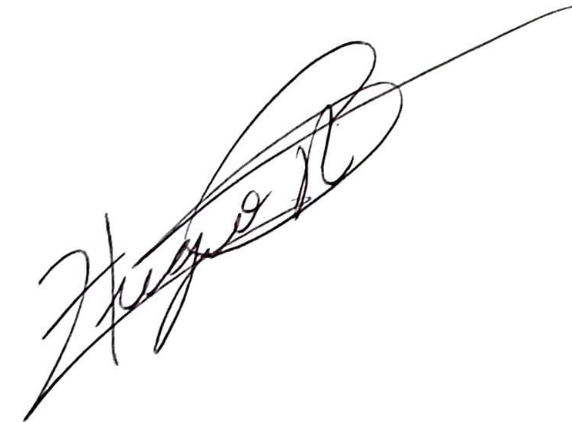 Hugo R